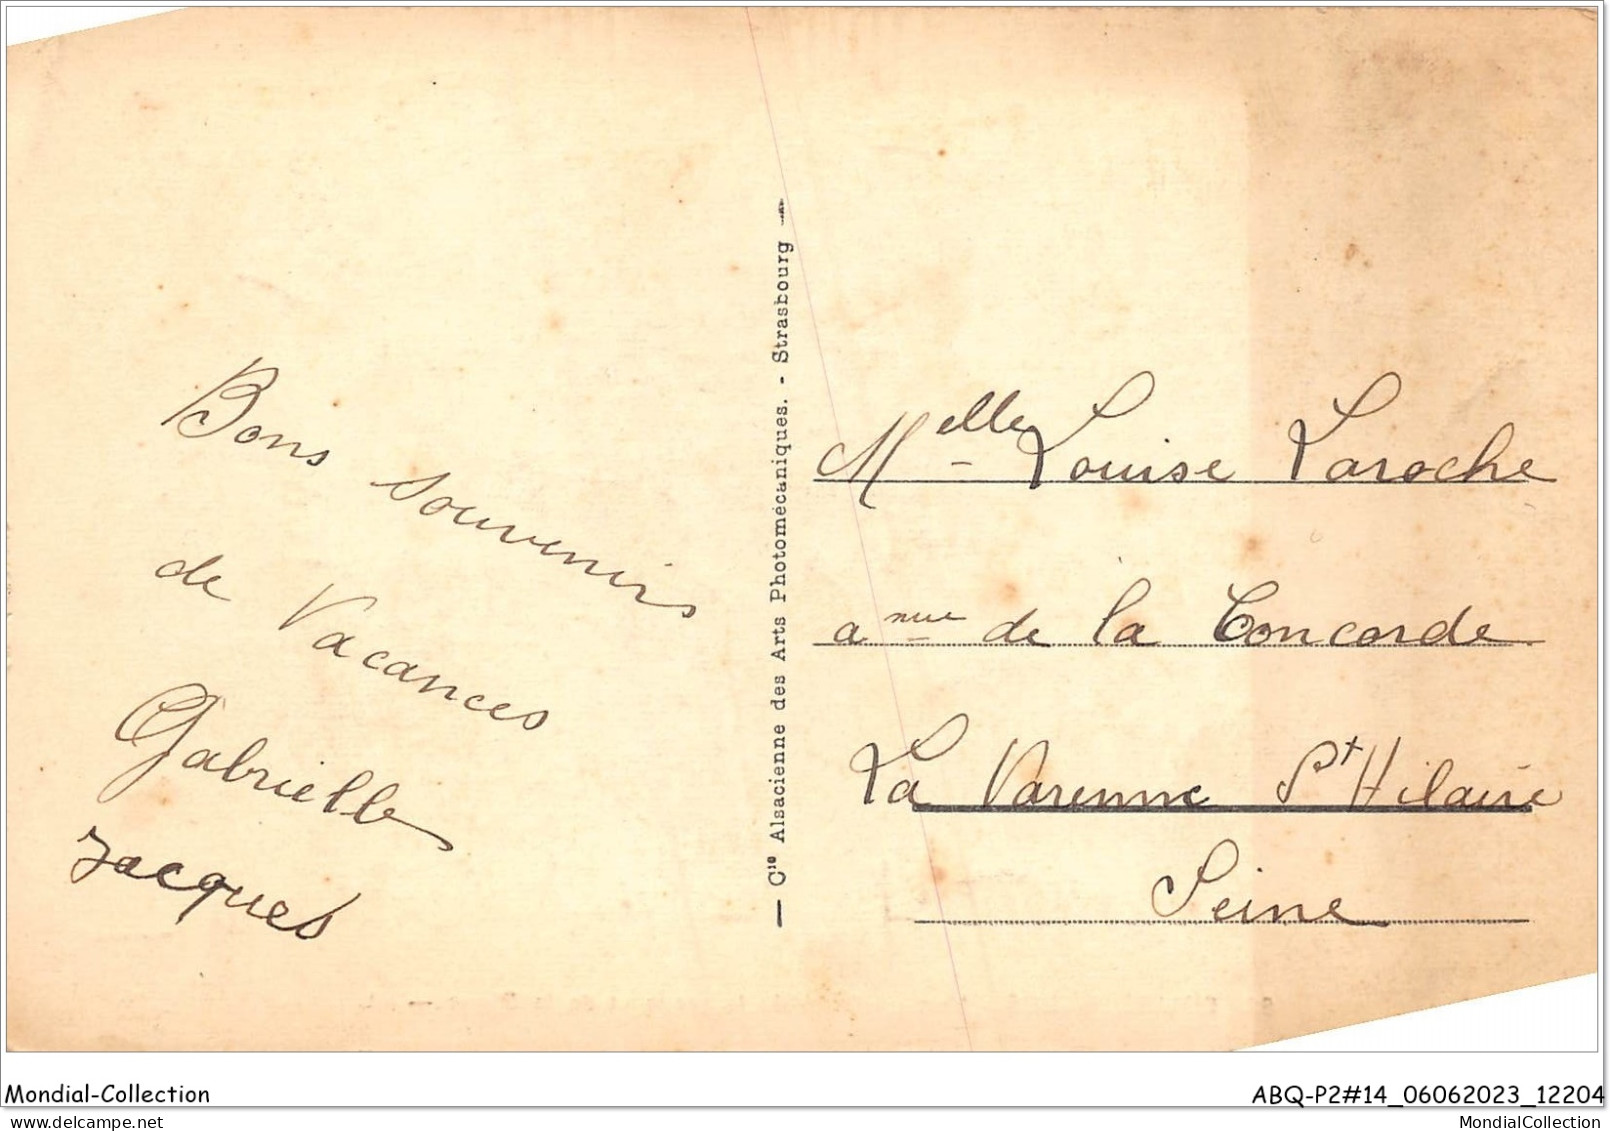 Bons souvenirs
de Vacances
Gabrielle
Jacques
— Cie Alsacienne des Arts Photomécaniques. - Strasbourg —
Melle Louise Laroche
anue de la Concorde
La Varenne St Hilaire
Seine
Mondial-Collection
ABQ-P2#14_06062023_12204
MondialCollection.net
MondialCollection